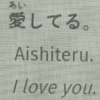 あい
愛してる。
Aishiteru.
I love you.